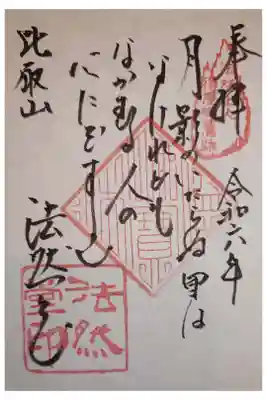 奉拝 令和六年
月影のいたらぬ里は
なけれども
なかむる人の
心にぞすむ
法然堂
比叡山
法然
堂印